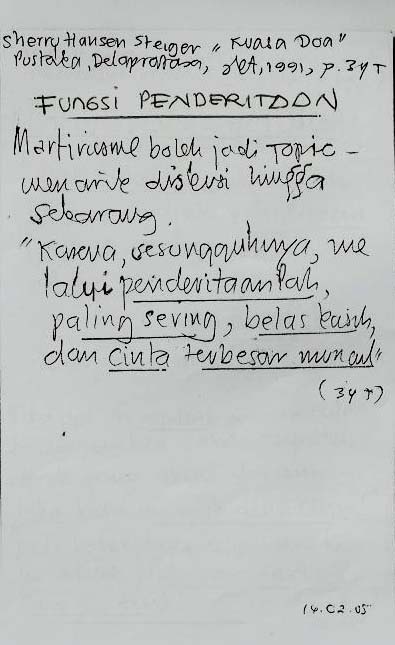 Sherry Hansen Steiger "Kuasa Doa"
Pustaka, Delapratasa, Jkt, 1991, p. 347
FUNGSI PENDERITAAN
Martirisme boleh jadi Topic -
menarik diskusi hingga
sekarang.
"Karena, sesungguhnya, me
lalui penderitaanlah,
paling sering, belas kasih,
dan cinta terbesar muncul"
(347)
14.02.05